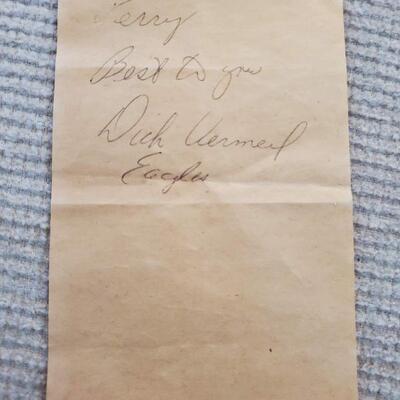 Terry
Best to you
Dick Vermeil
Eagles